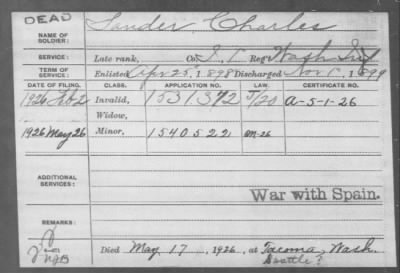 DEAD
NAME OF SOLDIER: Sander Charles
SERVICE: Late rank, Co. I, 1 Reg't Wash Inf
TERM OF SERVICE: Enlisted Apr 25, 1898 Discharged Nov 1, 1899
DATE OF FILING. CLASS. APPLICATION NO. LAW. CERTIFICATE NO.
1926 Feb 2 Invalid, 1531372 5/20 A-5-1-26
Widow,
1926 May 26 Minor, 1540522 5M-26
ADDITIONAL SERVICES:
War with Spain.
REMARKS:
Died May 17, 1926, at Tacoma, Wash.
Seattle?